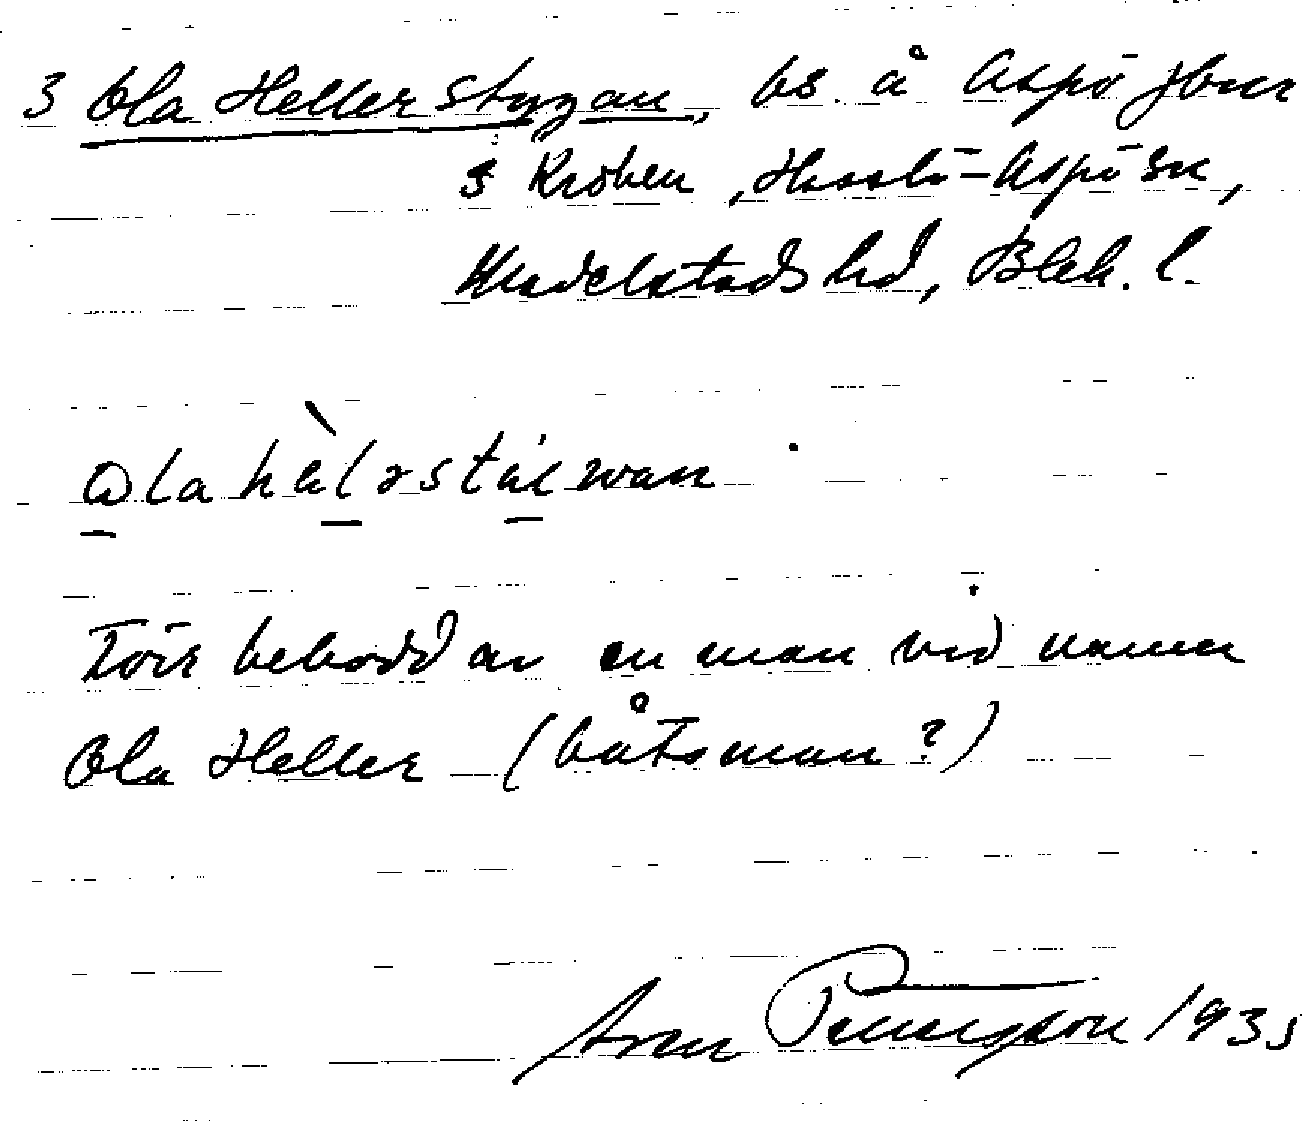 3 Ola Hellerstugan, bs. å Aspö jbnr
3 Kroken, Hasslö-Aspö sn,
Medelstads hd, Blek. l.
ɷla hàlǝstál wan
Förr bebodd av en man vid namn
Ola Heller (båtsman?)
Petersson 1935